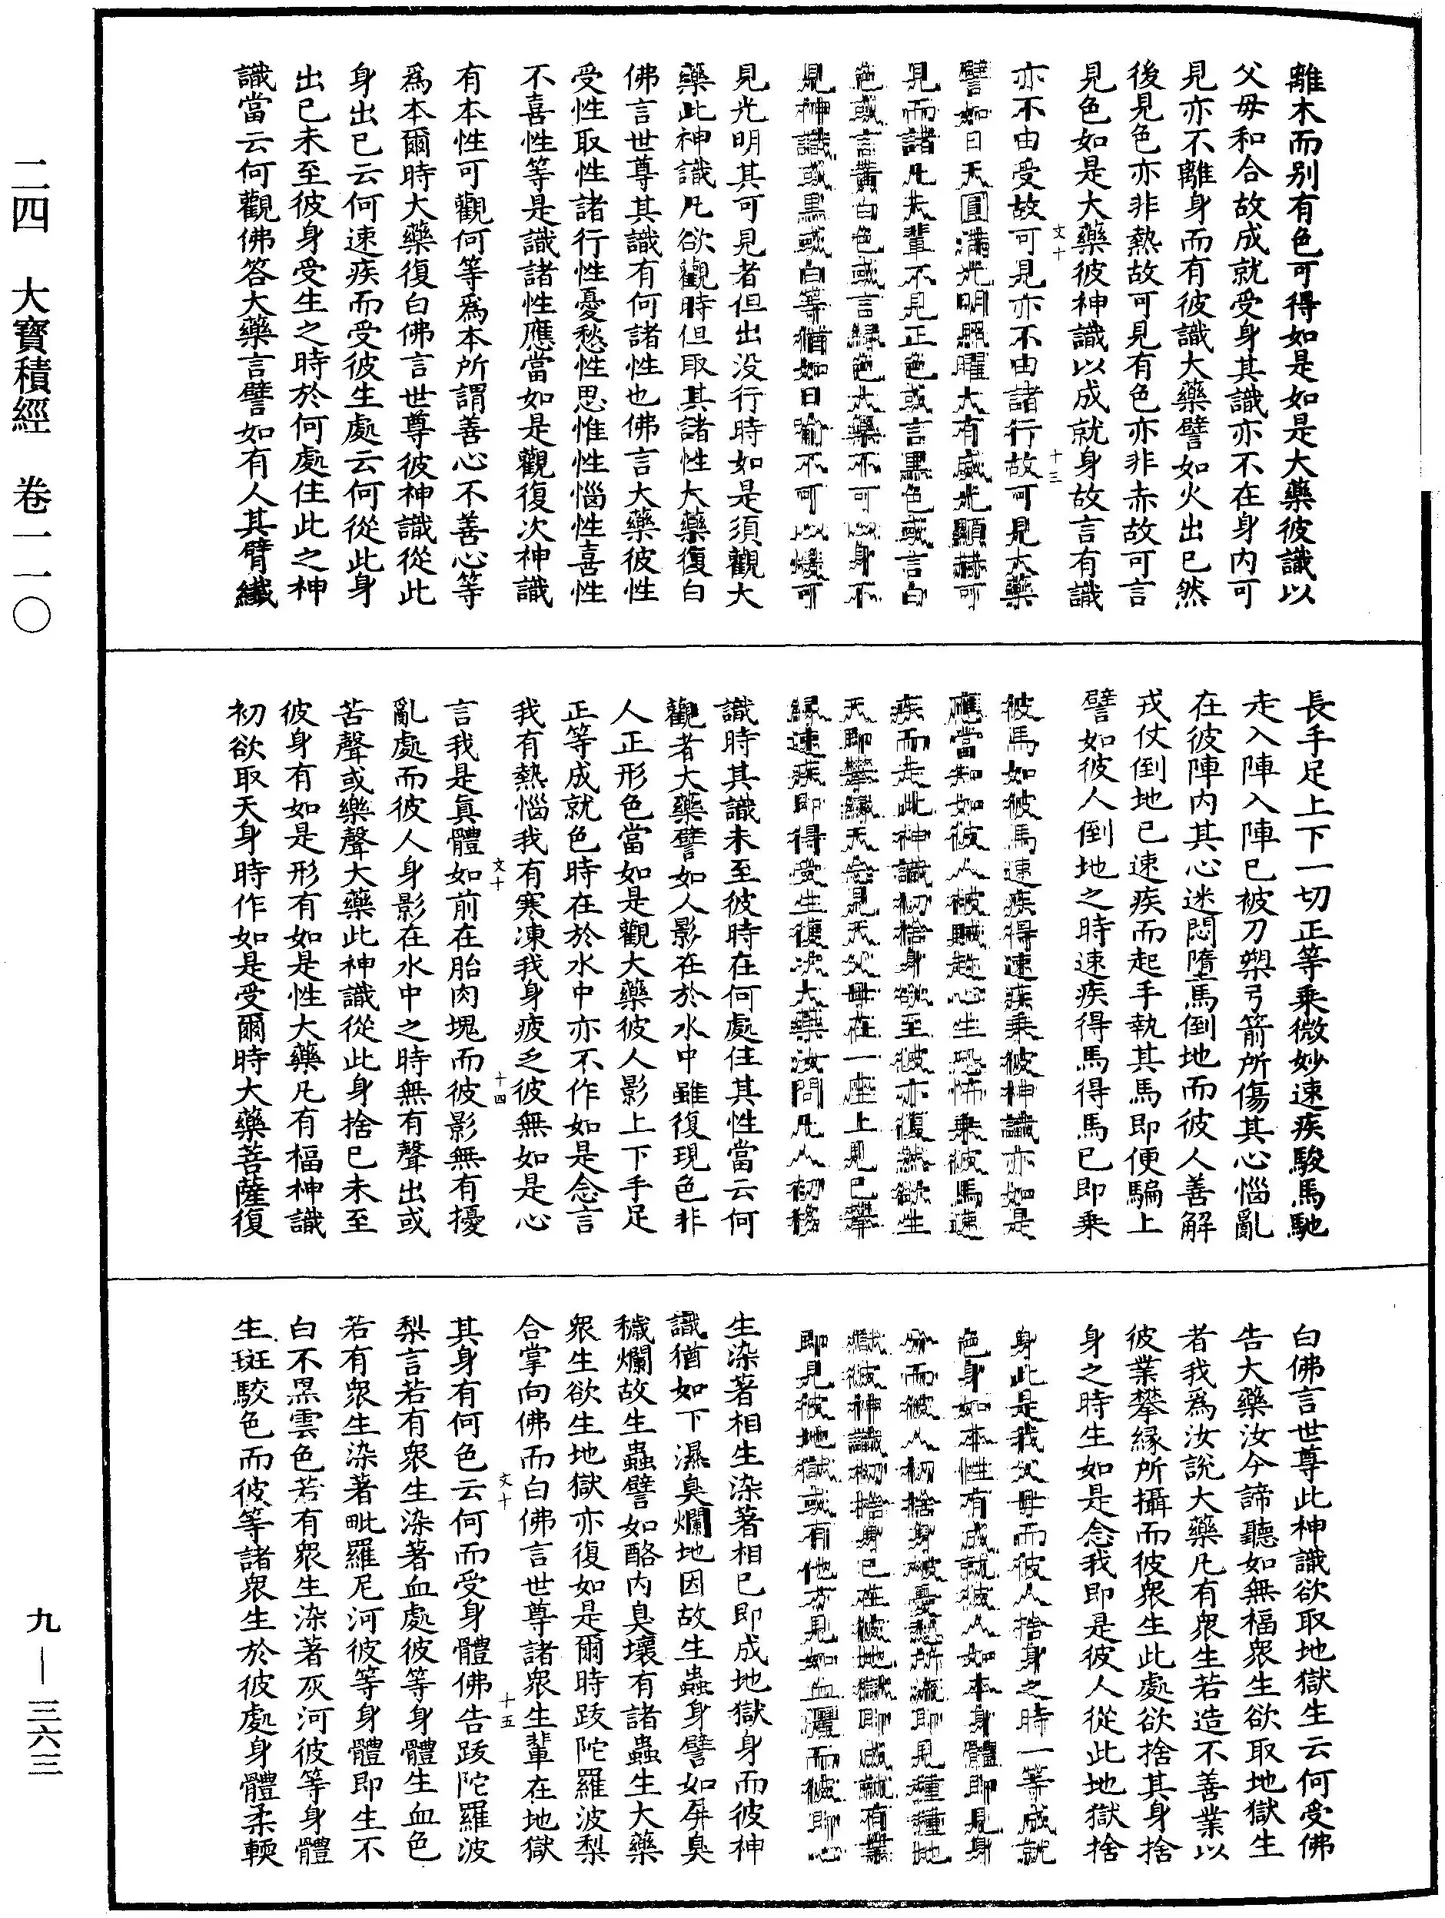 離木而别有色可得如是如是大藥彼識以
父母和合故成就受身其識亦不在身内可
見亦不離身而有彼識大藥譬如火出已然
後見色亦非熱故可見有色亦非赤故可言
見色如是大藥彼神識以成就身故言有識
亦不由受故可見亦不由諸行故可見大藥
譬如日天圓滿光明照曜大有威光顯赫可
見而諸凡夫輩不見正色或言黑色或言白
色或言黄白色或言緑色大藥不可以身不
見神識或黑或白等猶如日喻不可以煖可
見光明其可見者但出没行時如是須觀大
藥此神識凡欲觀時但取其諸性大藥復白
佛言世尊其識有何諸性也佛言大藥彼性
受性取性諸行性憂愁性思惟性惱性喜性
不喜性等是識諸性應當如是觀復次神識
有本性可觀何等爲本所謂善心不善心等
爲本爾時大藥復白佛言世尊彼神識從此
身出已云何速疾而受彼生處云何從此身
出已未至彼身受生之時於何處住此之神
識當云何觀佛答大藥言譬如有人其臂纖
文十
十三
長手足上下一切正等乘微妙速疾駿馬馳
走入陣入陣已被刀槊弓箭所傷其心惱亂
在彼陣内其心迷悶墮馬倒地而彼人善解
戎仗倒地已速疾而起手執其馬即便騙上
譬如彼人倒地之時速疾得馬得馬已即乘
彼馬如彼馬速疾得速疾乘彼神識亦如是
應當知如彼人被賊趁心生恐怖乘彼馬速
疾而走此神識初捨身欲至彼亦復然欲生
天即攀縁天念見天父母在一座上見已攀
縁速疾即得受生復次大藥汝問凡人初移
識時其識未至彼時在何處住其性當云何
觀者大藥譬如人影在於水中雖復現色非
人正形色當如是觀大藥彼人影上下手足
正等成就色時在於水中亦不作如是念言
我有熱惱我有寒凍我身疲乏彼無如是心
言我是真體如前在胎肉塊而彼影無有擾
亂處而彼人身影在水中之時無有聲出或
苦聲或樂聲大藥此神識從此身捨已未至
彼身有如是形有如是性大藥凡有福神識
初欲取天身時作如是受爾時大藥菩薩復
文十
十四
白佛言世尊此神識欲取地獄生云何受佛
告大藥汝今諦聽如無福衆生欲取地獄生
者我爲汝說大藥凡有衆生若造不善業以
彼業攀縁所攝而彼衆生此處欲捨其身捨
身之時生如是念我即是彼人從此地獄捨
身此是我父母而彼人捨身之時一等成就
色身如本性有成就彼人如本身體即見身
分而彼人初捨身被憂愁所流即見種種地
獄彼神識初捨身已在彼地獄即成就有業
即見彼地獄或有他方見如血灑而彼即心
生染著相生染著相已即成地獄身而彼神
識猶如下濕臭爛地因故生蟲身譬如屏臭
穢爛故生蟲譬如酪内臭壞有諸蟲生大藥
衆生欲生地獄亦復如是爾時跋陀羅波梨
合掌向佛而白佛言世尊諸衆生輩在地獄
其身有何色云何而受身體佛告跋陀羅波
梨言若有衆生染著血處彼等身體生血色
若有衆生染著毗羅尼河彼等身體即生不
白不黑雲色若有衆生染著灰河彼等身體
生斑駮色而彼等諸衆生於彼處身體柔輭
文十
十五
二四　大寶積經　卷一一〇
九—三六三